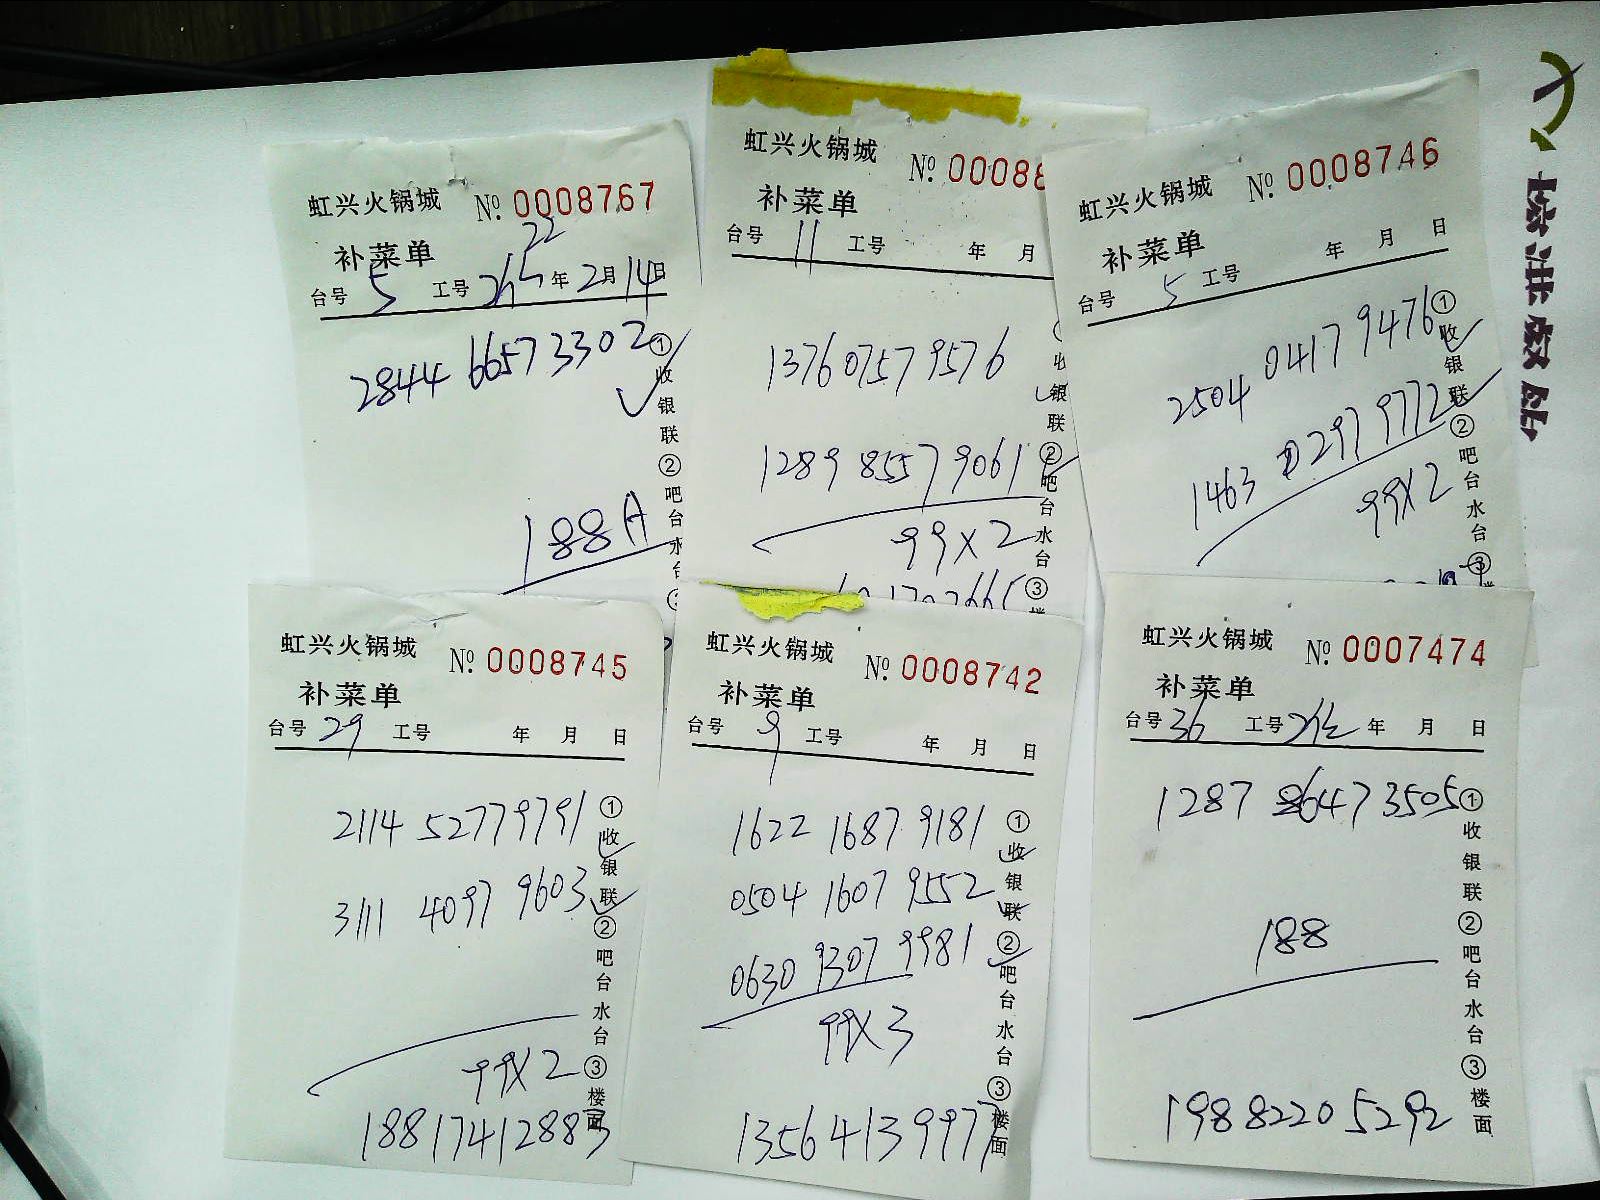 虹兴火锅城 No. 0008767
补菜单 22
台号 5 工号 年 2月 14日
2844 6657 3302
188A
①收银联②吧台水台
虹兴火锅城 No. 00088
补菜单
台号 11 工号 年 月
1376 0757 9576
1289 8557 9061
99X2
收银联②吧台水台③楼
虹兴火锅城 No. 0008746
补菜单
台号 5 工号 年 月 日
2504 0417 9476
1463 0297 9772
99X2
①收银联②吧台水台③
虹兴火锅城 No. 0008745
补菜单
台号 29 工号 年 月 日
2114 5277 9791
3111 4097 9603
99X2
18817412883
①收银联②吧台水台③楼面
虹兴火锅城 No. 0008742
补菜单
台号 9 工号 年 月 日
1622 1687 9181
0504 1607 9552
0630 9307 9981
99X3
13564139977
①收银联②吧台水台③楼面
虹兴火锅城 No. 0007474
补菜单
台号 36 工号 年 月 日
1287 8647 3505
188
19882205292
①收银联②吧台水台③楼面